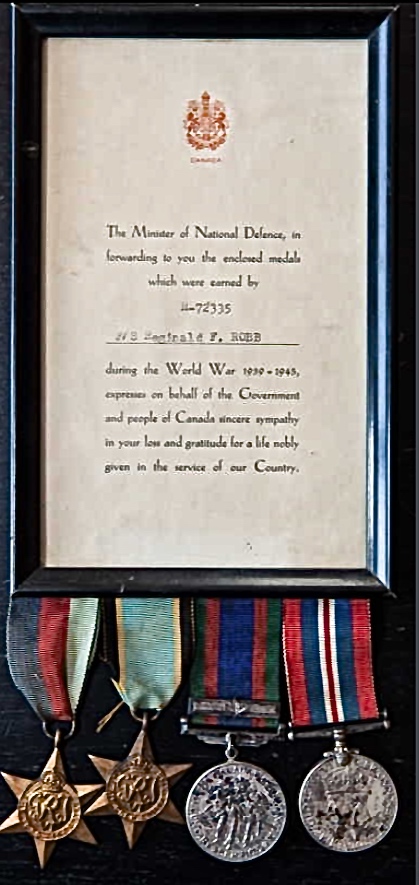 CANADA
The Minister of National Defence, in
forwarding to you the enclosed medals
which were earned by
H-72335
Reginald F. ROBB
during the World War 1939-1945,
expresses on behalf of the Government
and people of Canada sincere sympathy
in your loss and gratitude for a life nobly
given in the service of our Country.